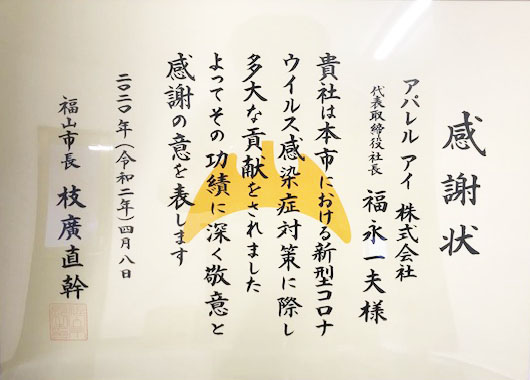 感謝状
アパレル アイ 株式会社
代表取締役社長 福永一夫様
貴社は本市における新型コロナ
ウイルス感染症対策に際し
多大な貢献をされました
よってその功績に深く敬意と
感謝の意を表します
二〇二〇年(令和二年)四月八日
福山市長 枝廣直幹